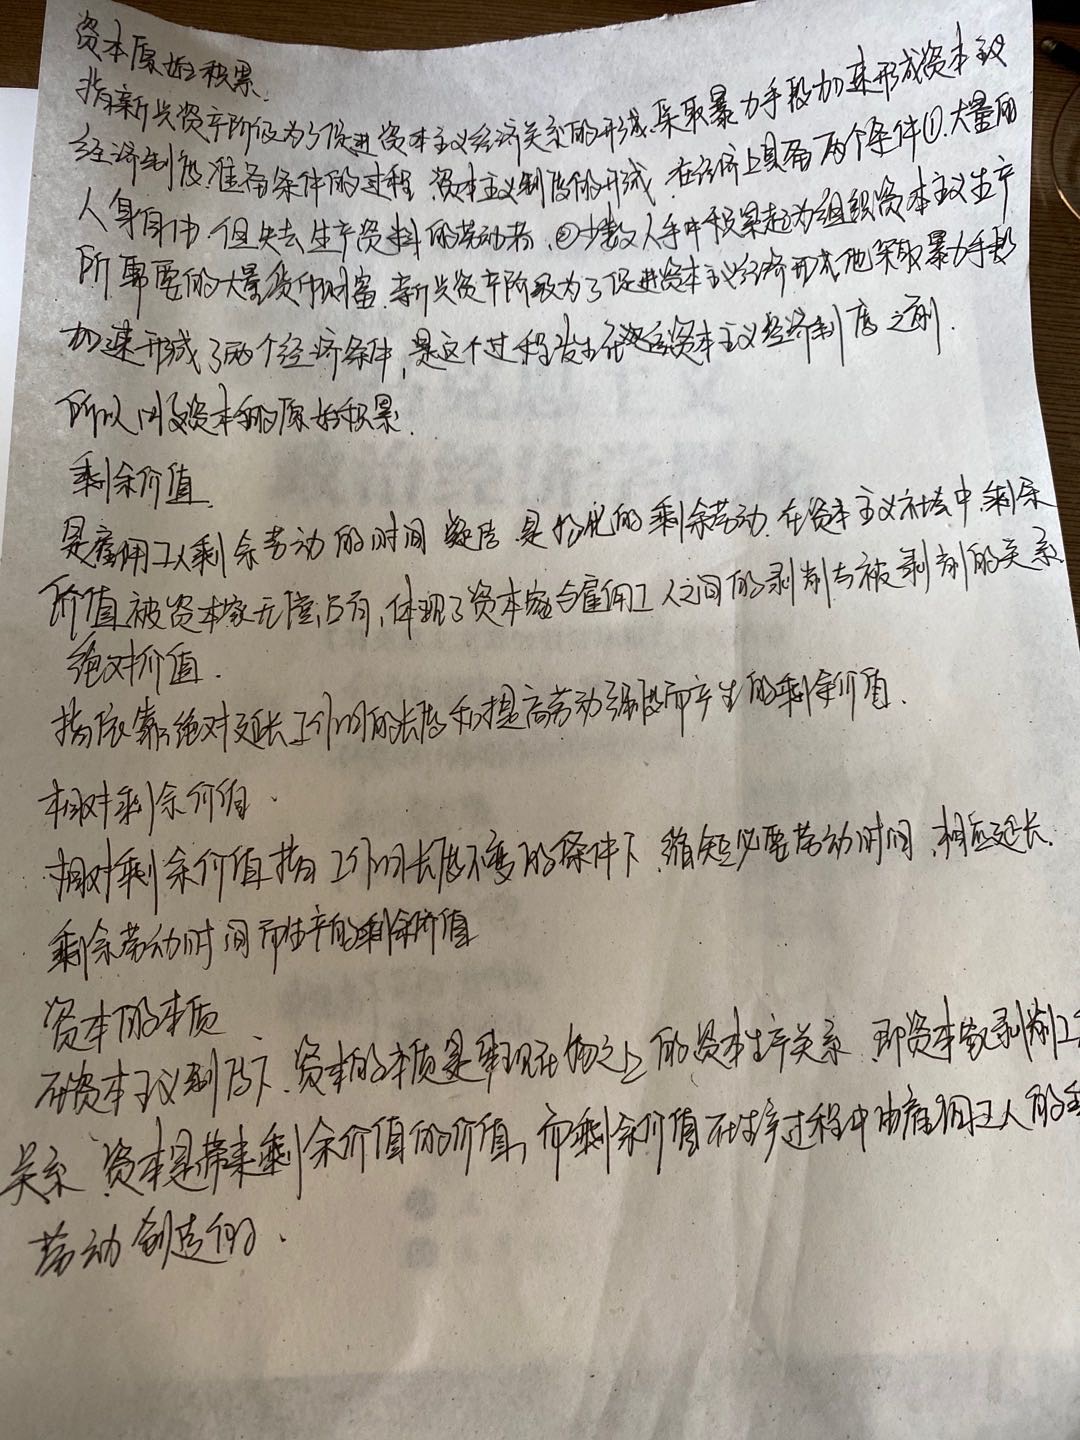 资本原始积累.
指新兴资产阶级为了促进资本主义经济关系的形成,采取暴力手段加速形成资本主义
经济制度准备条件的过程,资本主义制度的形成,在经济上具备两个条件①.大量的
人身自由,但失去生产资料的劳动者,②少数人手中积累起为组织资本主义生产
所需要的大量货币财富,新兴资产阶级为了促进资本主义经济形成他采取暴力手段
加速形成了两个经济条件,是这个过程发生在资本主义经济制度之前.
所以叫资本的原始积累.
剩余价值
是雇佣工人剩余劳动的时间凝结,是物化的剩余劳动.在资本主义社会中,剩余
价值被资本家无偿占有,体现了资本家与雇佣工人之间的剥削与被剥削的关系
绝对价值.
指依靠绝对延长工作日的长度和提高劳动强度而产生的剩余价值.
相对剩余价值.
相对剩余价值指工作日长度不变的条件下,缩短必要劳动时间,相应延长.
剩余劳动时间而生产的剩余价值
资本的本质
在资本主义制度下,资本的本质是体现在物之上的资本生产关系,即资本家剥削工
关系,资本是带来剩余价值的价值,而剩余价值在生产过程中由雇佣工人的
劳动创造的.